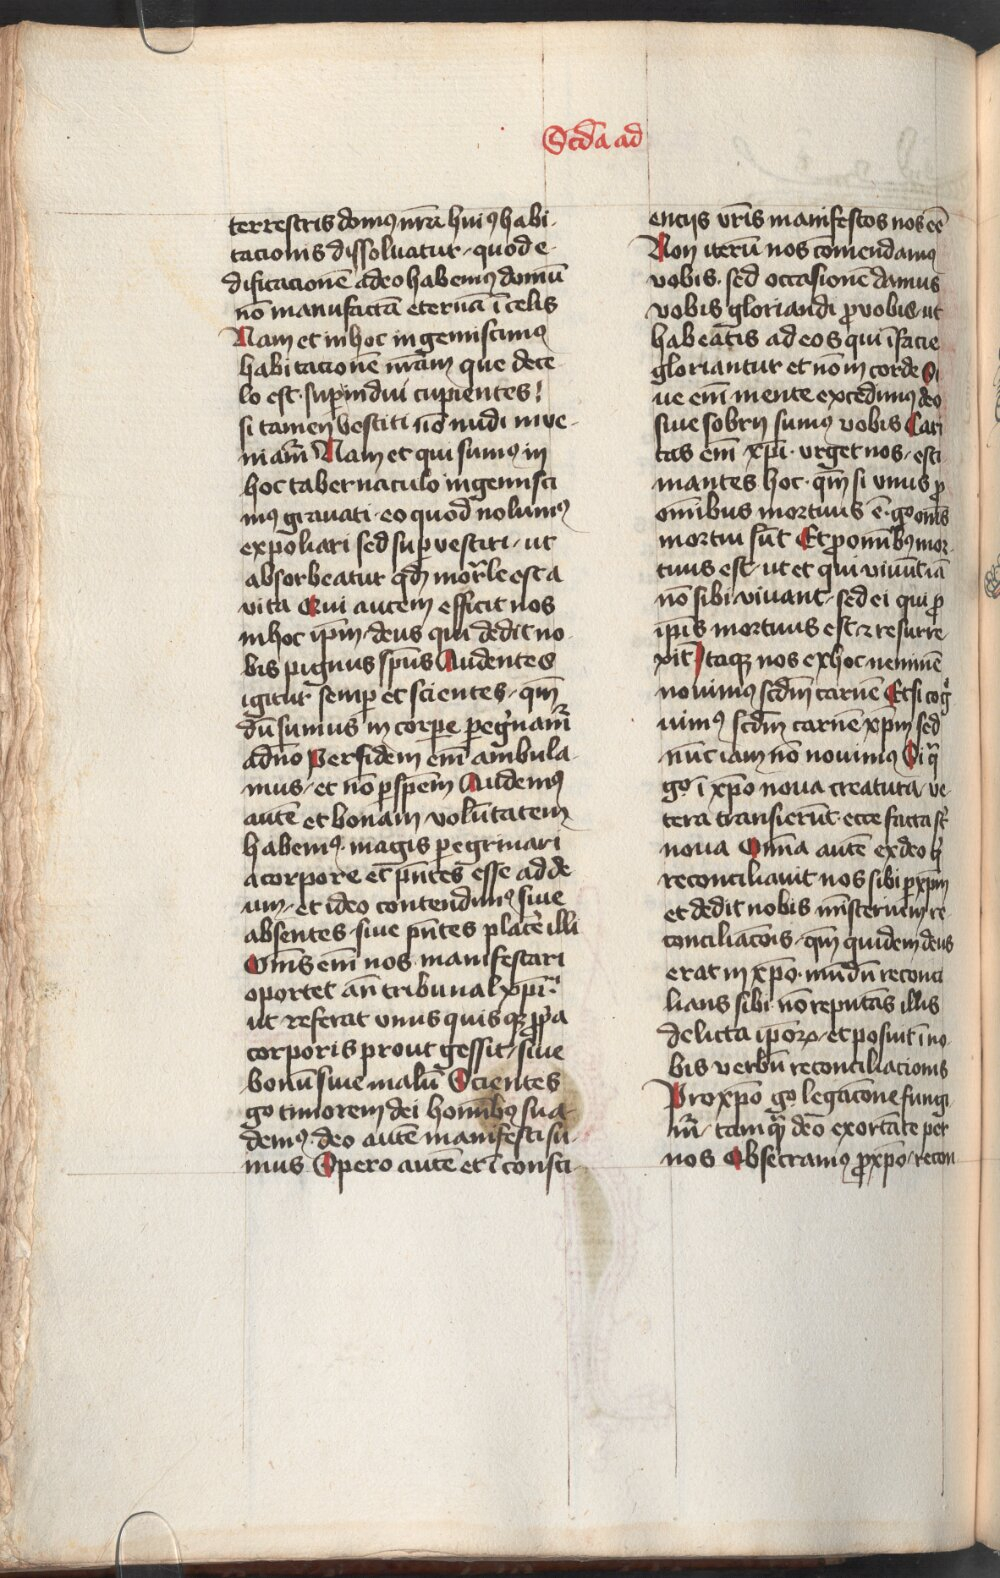 Scd̄a ad
terrestris domꝰ nr̄a huiꝰ habi-
tacionis dissoluatur quod e-
dificacionē a deo habemꝰ domū
nō manufactā eternā ī celis
Nam et in hoc ingemiscimꝰ
habitacionē nr̄am que de ce
lo est suꝑindui cupientes
si tamen vestiti nō nudi inue-
niam̄ Nam et qui sumꝰ in
hoc tabernaculo ingemisci
mꝰ grauati eo quod nolumꝰ
expoliari sed suꝑvestiri ut
absorbeatur qd̄ mor̄le est a
vita Qui autem efficit nos
in hoc ip̄m deus qui dedit no
bis pignus sp̄us Audentes
igitur semꝑ et scientes qm̄
dū sumus in corꝑe ꝑeg̓nam̄
a dn̄o Per fidem em̄ ambula
mus et nō ꝑ spēm Audemꝰ
autē et bonam volūtatem
habemꝰ magis ꝑegrinari
a corpore et pn̄tes esse ad de
um et ideo contendimꝰ siue
absentes siue pn̄tes placēe illi
Om̄s em̄ nos manifestari
oportet an̄ tribunal xp̄i
ut referat vnusquisqꝫ ꝓp̓a
corporis prout gessit siue
bonū siue malū Scientes
gͦ timorem dei homībꝰ sua
demꝰ deo autē manifesti su-
mus Spero autē et ī consci
encijs vr̄is manifestos nos eē
Non iterū nos cōmendamꝰ
vobis sed occasionē damus
vobis gloriandi ꝓ vobis ut
habeātis ad eos qui ī facie
gloriantur et nō in corde Si
ue em̄ mente excedimꝰ deo
siue sobrij sumꝰ vobis Cari
tas em̄ xp̄i vrget nos esti
mantes hoc qm̄ si vnus ꝓ
omībus mortuus ē gͦ om̄s
mortui sūt Et ꝓ omībꝰ mor-
tuus est ut et qui viuūt iā
nō sibi viuant sed ei qui ꝓ
ip̄is mortuus est ⁊ resurre
xit Itaqꝫ nos ex hoc neminē
nouimꝰ scd̄m carnē Et si cogͦ
uimꝰ scd̄m carnē xp̄m sed
nūc iam nō nouimꝰ Si qͣ
gͦ ī xp̄o noua creatura ve
tera transierūt ecce facta st̄
noua Om̄ia autē ex deo q̓
reconciliauit nos sibi ꝑ xp̄m
et dedit nobis mīsterium re
conciliacōis qm̄ quidem deus
erat in xp̄o mūdū reconci
lians sibi nō reputās illis
delicta ip̄oꝝ et posuit ī no
bis verbū reconciliacionis
Pro xp̄o gͦ legacōne fungi
m̄ tamqͣ deo exortāte per
nos Obsecramꝰ ꝓ xp̄o recon